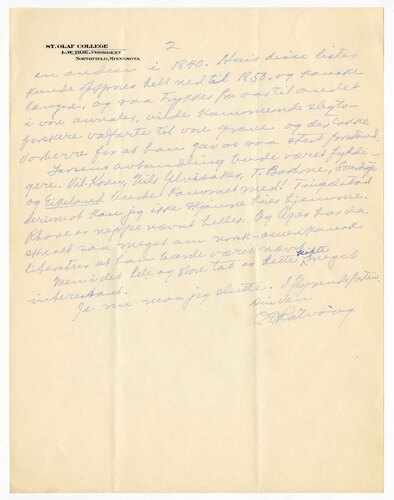 ST. OLAF COLLEGE
L. W. BOE, PRESIDENT
NORTHFIELD, MINNESOTA
2.
en anden i 1840. Hvis disse lister
kunde opspores helt ned til 1850, og kanske
længre, og saa trykkes fra aar til andet
i vore annaler, vilde kommende slegts-
forskere valfarte til vore grave og det ikke
for at han gav os saa stort forstand.
Larsens avhandling burde været fyldi-
gere. Vil. Koren, Nils Ylvisaker, T.
og Eikeland burde kommet med! Tingelstad
derimot kan jeg ikke skjønne hører hjemme.
er neppe nævnt heller. Og Ager har da
skrevet saa meget om norsk-amerikansk
literatur at han burde været nævnt.
Men i det hele og store tat er dette hefte meget
interessant.
Ja nu maa jeg slutte. I
Din ven
O E Rølvaag